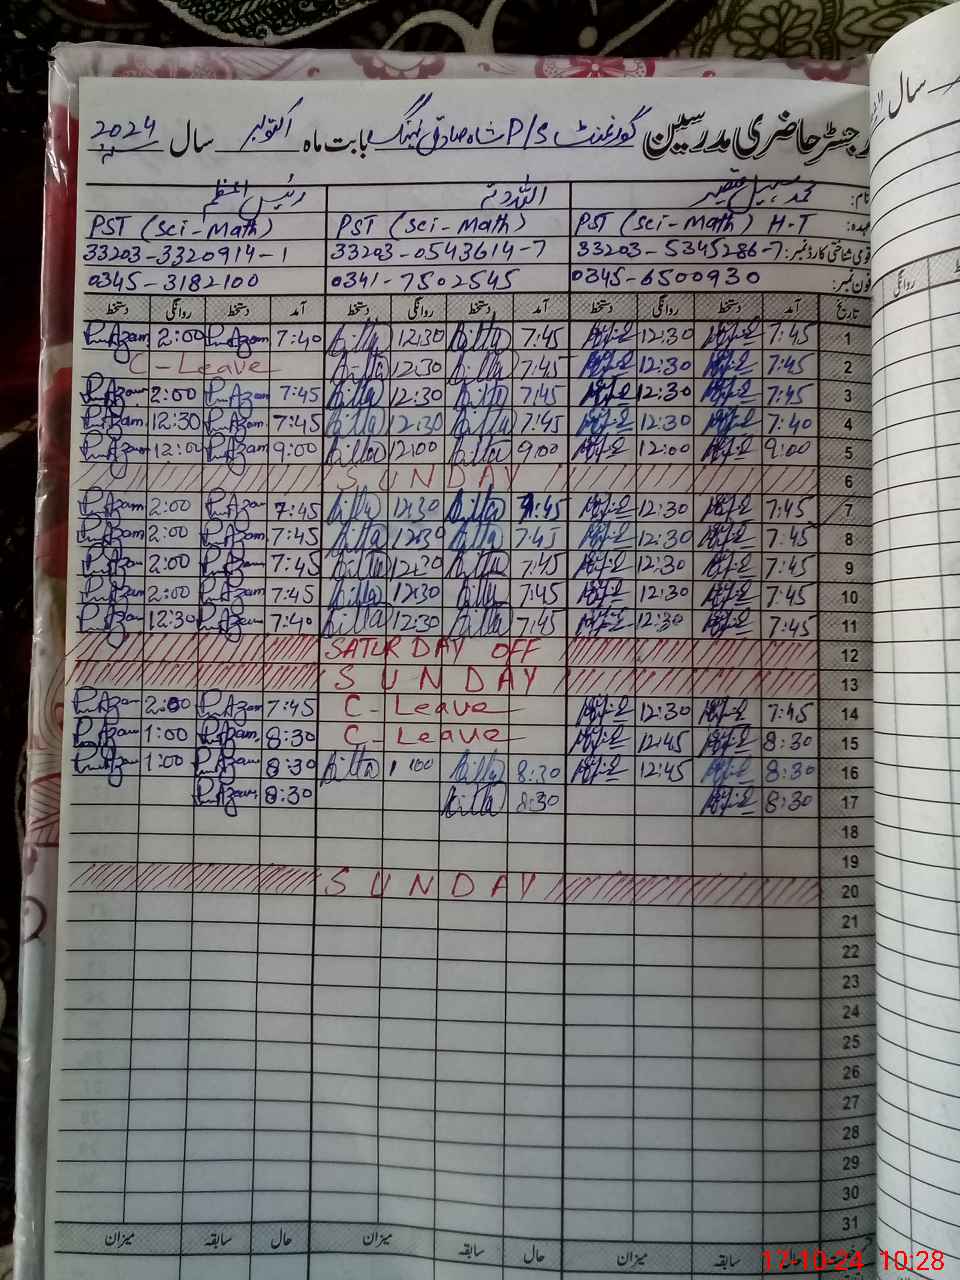 رجسٹر حاضری مدرسین گورنمنٹ P/S شاہ صادق نہنگ بابت ماہ اکتوبر سال 2024
نام: محمد سہیل قیصر اللہ دتہ رئیس اعظم
عہدہ: PST (Sci-Math) H-T PST (Sci-Math) PST (Sci-Math)
قومی شناختی کارڈ نمبر: 33203-5345286-7 33203-0543614-7 33203-3320914-1
فون نمبر: 0345-6500930 0341-7502545 0345-3182100
تاریخ آمد دستخط روانگی دستخط آمد دستخط روانگی دستخط آمد دستخط روانگی دستخط
1 7:45 12:30 7:45 12:30 7:40 R.Azam 2:00 R.Azam
2 7:45 12:30 7:45 12:30 C-Leave
3 7:45 12:30 7:45 12:30 7:45 R.Azam 2:00 R.Azam
4 7:40 12:30 7:45 12:30 7:45 R.Azam 12:30 R.Azam
5 9:00 12:00 9:00 12:00 9:00 R.Azam 12:00 R.Azam
6 SUNDAY
7 7:45 12:30 7:45 12:30 7:45 R.Azam 2:00 R.Azam
8 7:45 12:30 7:45 12:30 7:45 R.Azam 2:00 R.Azam
9 7:45 12:30 7:45 12:30 7:45 R.Azam 2:00 R.Azam
10 7:45 12:30 7:45 12:30 7:45 R.Azam 2:00 R.Azam
11 7:45 12:30 7:45 12:30 7:40 R.Azam 12:30 R.Azam
12 SATURDAY OFF
13 SUNDAY
14 7:45 12:30 C-Leave 7:45 R.Azam 2:00 R.Azam
15 8:30 12:45 C-Leave 8:30 R.Azam 1:00 R.Azam
16 8:30 12:45 8:30 1:00 8:30 R.Azam 1:00 R.Azam
17 8:30 8:30 8:30 R.Azam
18
19
20 SUNDAY
21
22
23
24
25
26
27
28
29
30
31
حال سابقہ میزان حال سابقہ میزان حال سابقہ میزان
سال
روانگی
17-10-24 10:28